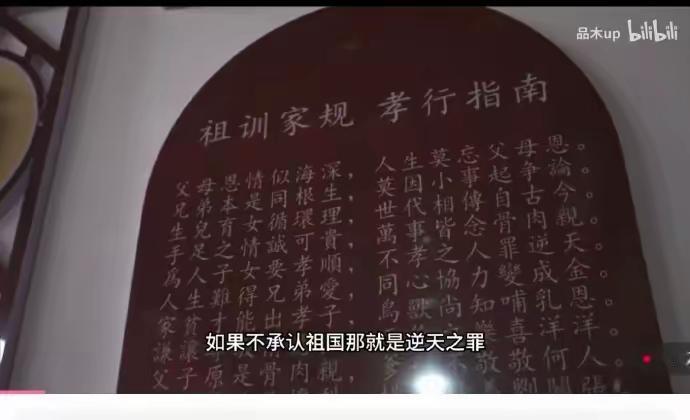 品木up bilibili
祖训家规 孝行指南
父母恩情似海深，人生莫忘父母恩。
兄弟本是同根生，莫因小事起爭論。
生兒育女循環理，世代相傳自古今。
手足之情誠可貴，萬事皆念骨肉親。
爲人子女要孝順，不孝之人罪逆天。
人生難得兄弟愛，同心協力變成金。
家貧才能出孝子，鳥獸尚知哺乳恩。
如果不承认祖国那就是逆天之罪